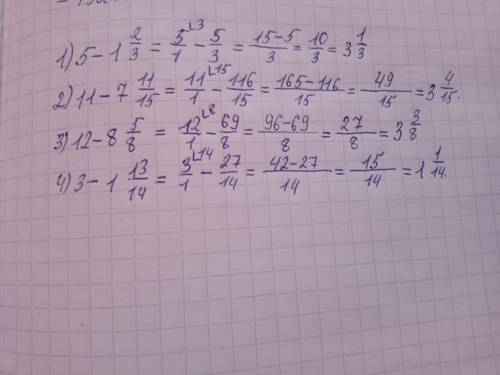 1) 5 - 1 2/3 = 5/1 ᴸ³ - 5/3 = 15-5/3 = 10/3 = 3 1/3
2) 11 - 7 11/15 = 11/1 ᴸ¹⁵ - 116/15 = 165-116/15 = 49/15 = 3 4/15.
3) 12 - 8 5/8 = 12/1 ᴸ⁸ - 69/8 = 96-69/8 = 27/8 = 3 3/8
4) 3 - 1 13/14 = 3/1 ᴸ¹⁴ - 27/14 = 42-27/14 = 15/14 = 1 1/14.